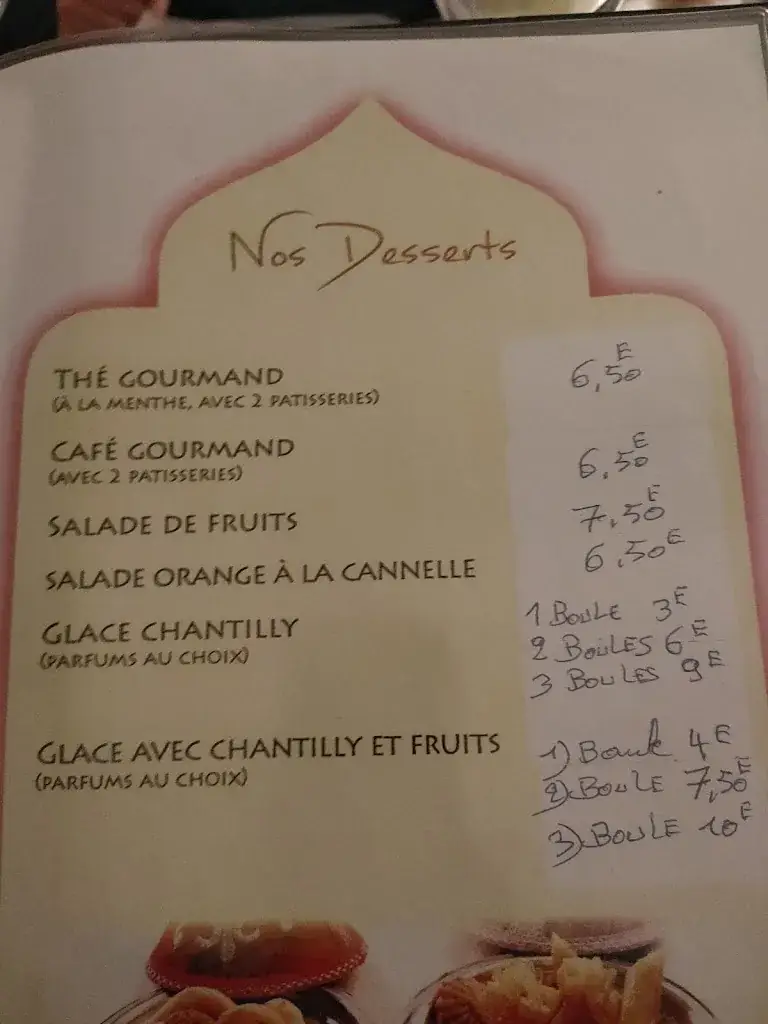 Nos Desserts
THÉ GOURMAND 6,50E
(À LA MENTHE, AVEC 2 PATISSERIES)
CAFÉ GOURMAND 6,50E
(AVEC 2 PATISSERIES)
SALADE DE FRUITS 7,50E
SALADE ORANGE À LA CANNELLE 6,50E
GLACE CHANTILLY 1 BOULE 3E
(PARFUMS AU CHOIX) 2 BOULES 6E
3 BOULES 9E
GLACE AVEC CHANTILLY ET FRUITS 1) Boule 4E
(PARFUMS AU CHOIX) 2) BOULE 7,50E
3) BOULE 10E